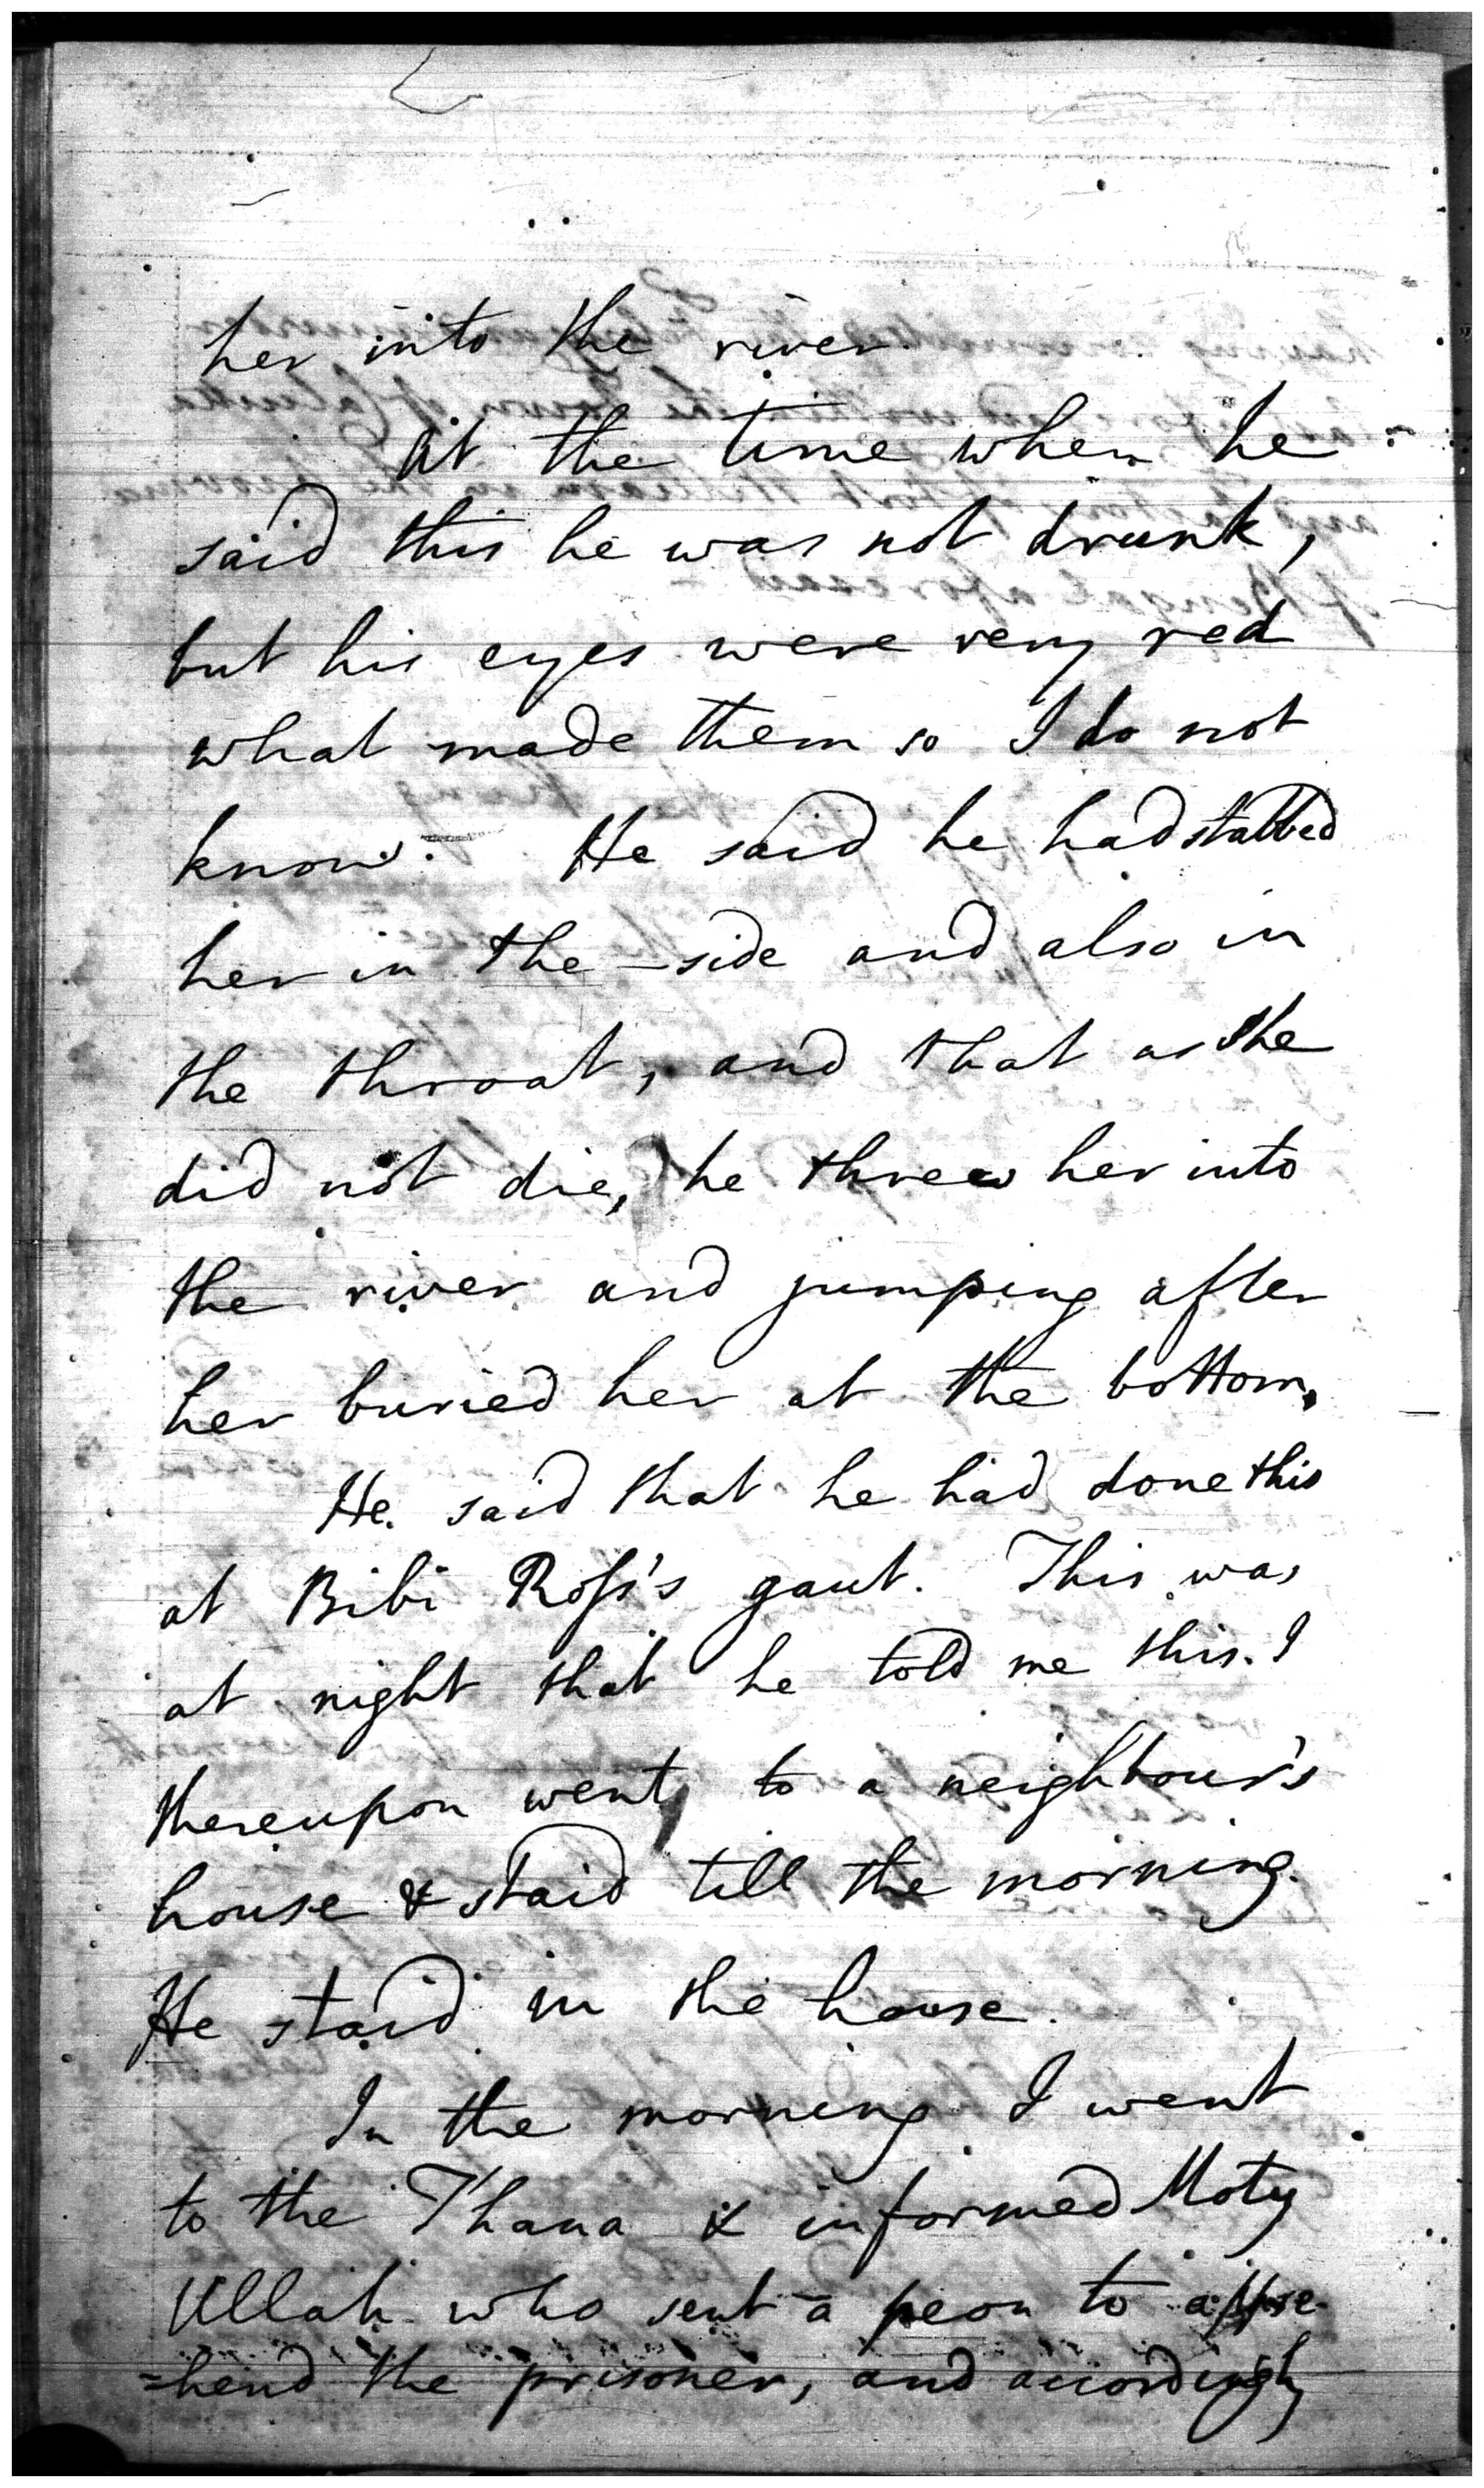 her into the river.
At the time when he
said this he was not drunk,
but his eyes were very red
what made them so I do not
know. He said he had stabbed
her in the side and also in
the throat, and that as she
did not die, he threw her into
the river and jumping after
her buried her at the bottom.
He said that he had done this
at Bibi Roſs's gaut. This was
at night that he told me this. I
thereupon went to a neighbour's
house & staid till the morning.
He staid in the house.
In the morning I went
to the Thana & informed Moty
Ullah who sent a peon to appre-
=hend the prisoner, and accordingly